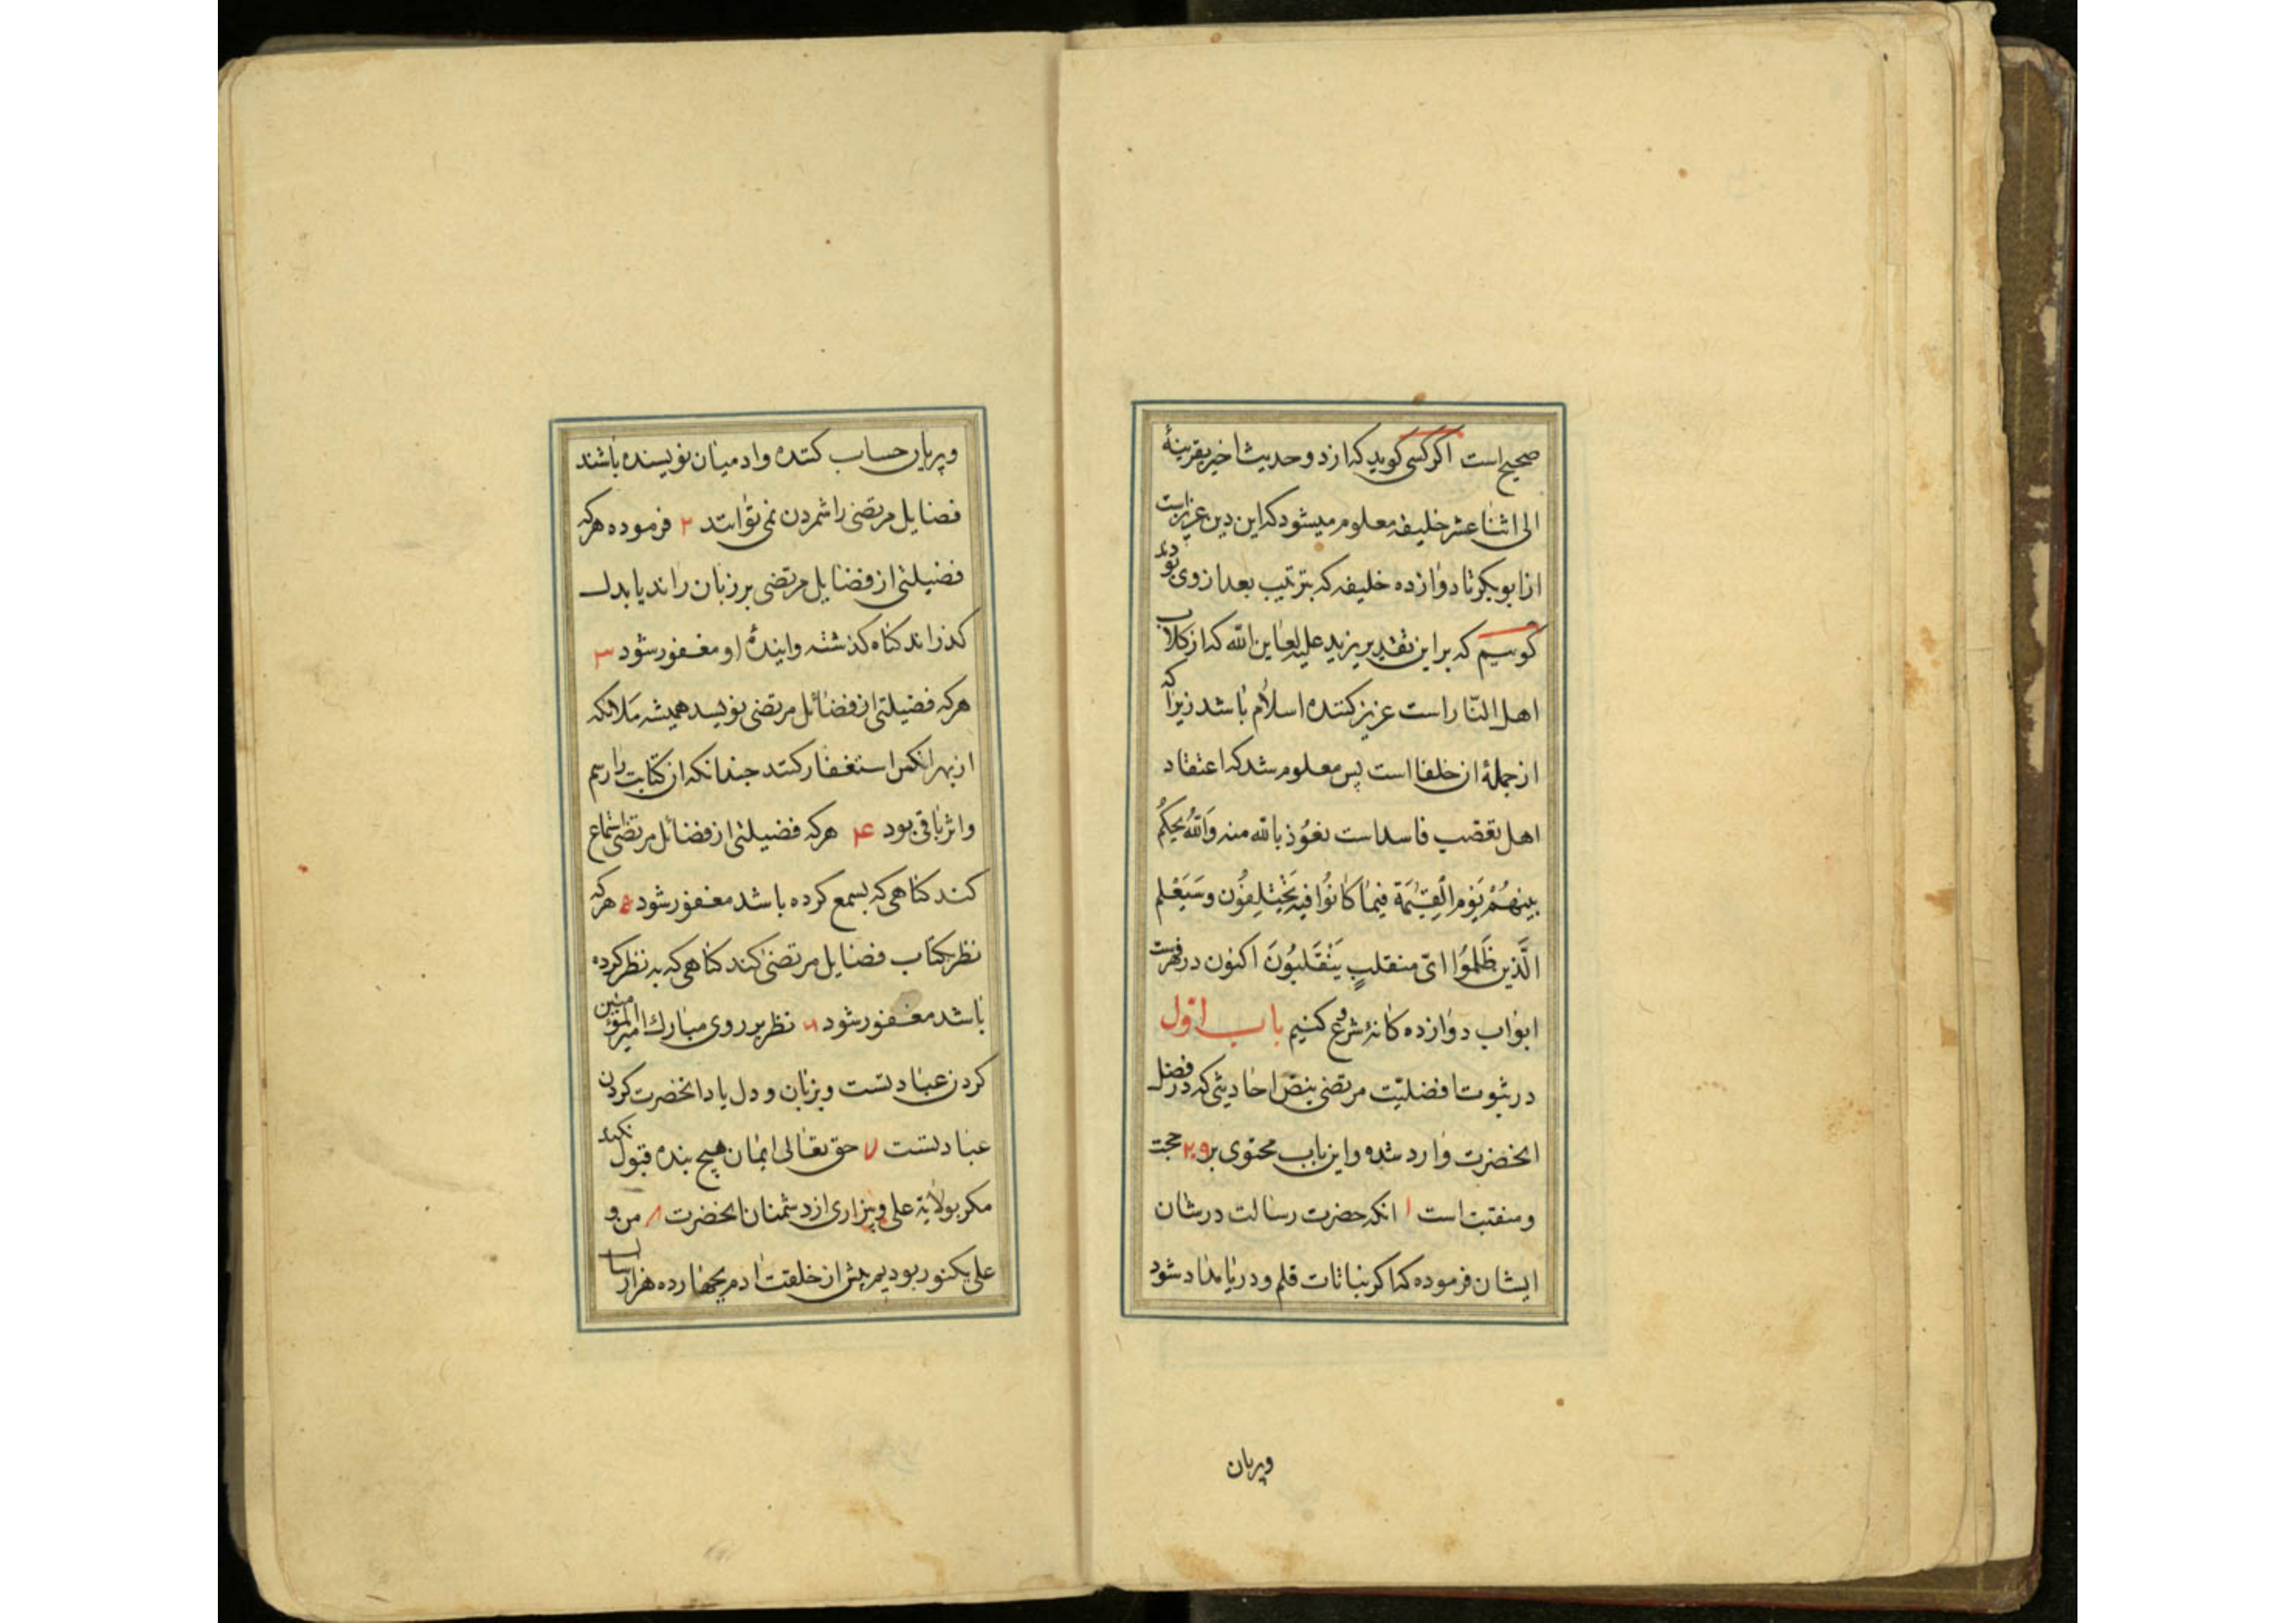 صحیح است اکر کسی کوید که از دو حدیث اخیر بقرینهٔ
الی اثنا عشر خلیفه معلوم میشود که این دین عزیز است
از ابوبکر تا دوازده خلیفه که بترتیب بعد از وی بودند
کوییم که بر این تقدیر یزید علیه لعاین الله که از کلاب
اهل النار است عزیز کننده اسلام باشد زیرا که
از جملهٔ ان خلفا است پس معلوم شد که اعتقاد
اهل تعصب فاسد است نعوُذ بالله منه وَاللهُ یحکُم
بینهُمْ یَوْم الْقِیٰمَة فیمٰا کٰانُوا فیه یَخْتَلِفُون وسَیَعْلم
الَّذین ظَلَمُوا ایّ منقلبٍ یَنْقَلبُونَ اکنون در فهرست
ابواب دوازده کانه شروع کنیم باب اوّل
در ثبوت افضلیّت مرتضی بنصّ احادیثی که در فضل
انحضرت وارد شده واین باب محتوی بر ۲۰۹ حجت
ومنقبت است ۱ انکه حضرت رسالت در شان
ایشان فرموده که اکر نباتات قلم ودریا مداد شود
وپریان
وپریان حساب کننده وادمیان نویسنده باشند
فضایل مرتضی را شمردن نمی توانند ۲ فرموده هرکه
فضیلتی از فضایل مرتضی بر زبان راند یا بدل
کذراند کناه کذشته وایندهٔ او مغفور شود ۳
هرکه فضیلتی از فضائل مرتضی نویسد همیشه ملائکه
از بهر انکس استغفار کنند چندانکه ان کتابت را رسم
واثر باقی بود ۴ هرکه فضیلتی از فضائل مرتضی استماع
کند کناهی که بسمع کرده باشد مغفور شود ۵ هرکه
نظر بکتاب فضایل مرتضی کند کناهی که به نظر کرده
باشد مغفور شود ۶ نظر بر روی مبارک امیر المؤمنین
کردن عبادتست وبزبان و دل یاد انحضرت کردن
عبادتست ۷ حق تعالی ایمان هیچ بنده قبول نکند
مکر بولایة علی وبیزاری از دشمنان انحضرت ۸ من و
علی یکنور بودیم پیش از خلقت ادم بچهارده هزار سال